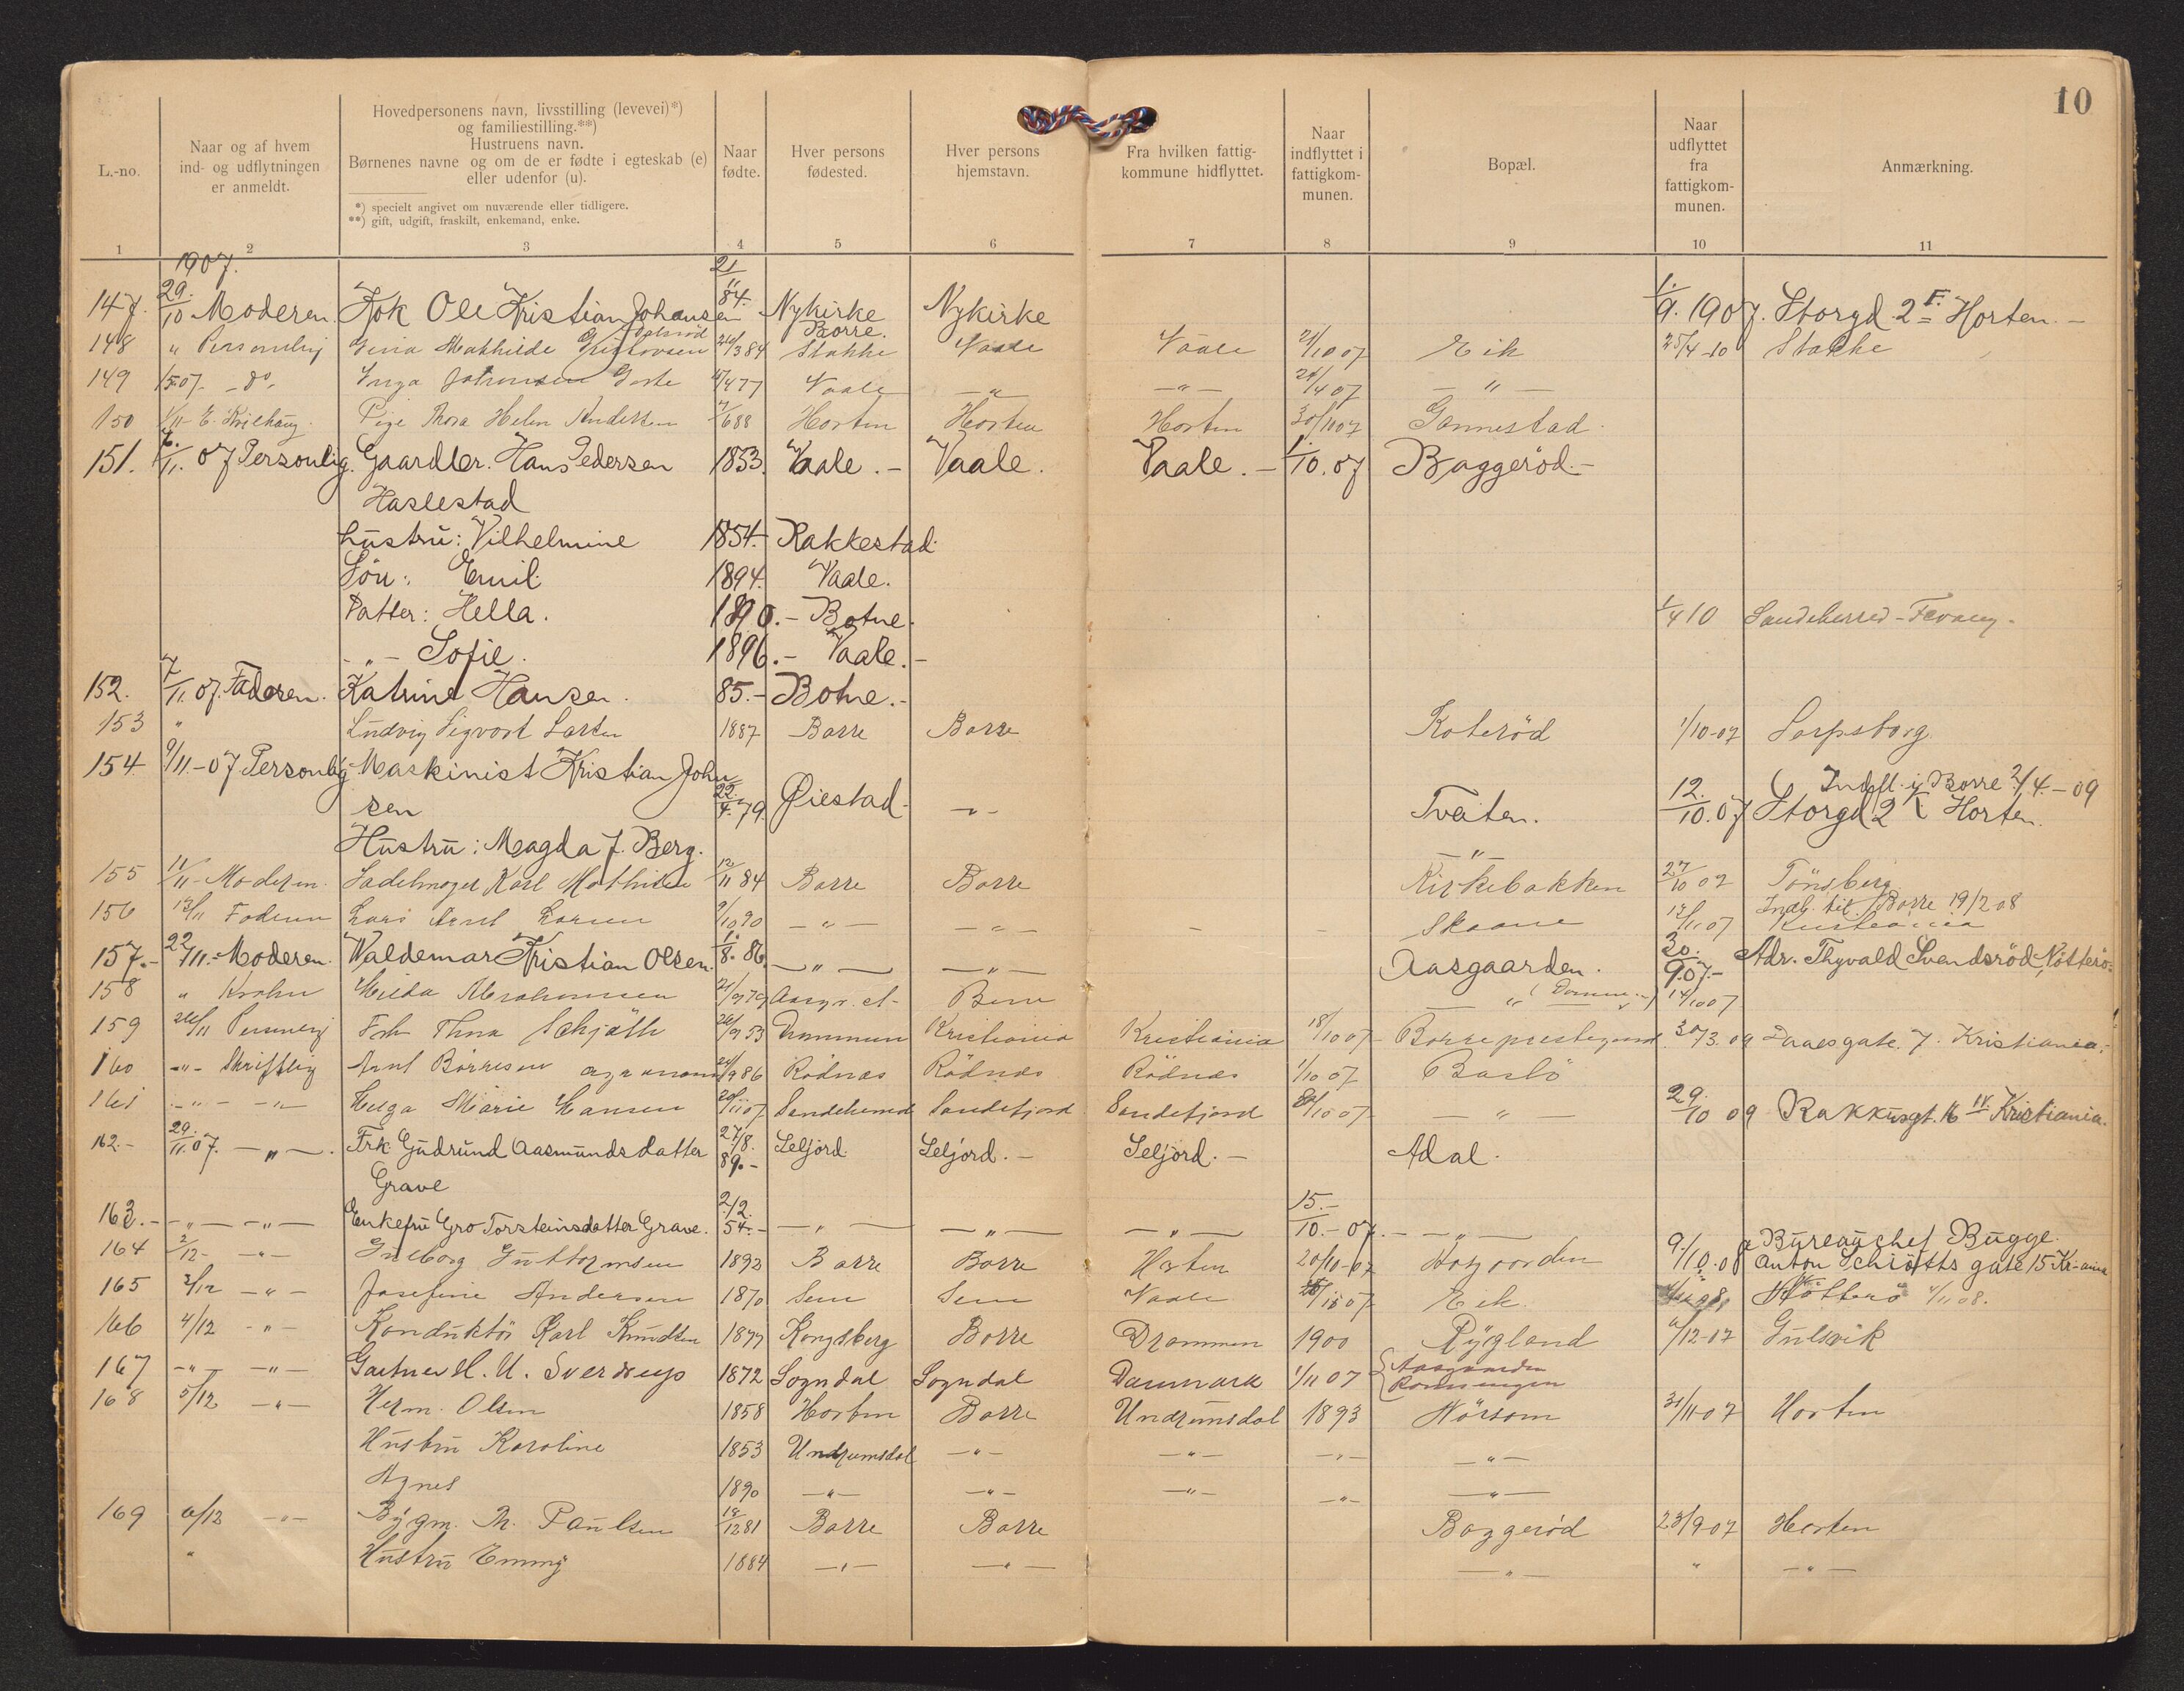 10
L.-no.
Naar og af hvem ind- og udflytningen er anmeldt.
Hovedpersonens navn, livsstilling (levevei)*) og familiestilling.**)
Hustruens navn.
Børnenes navne og om de er fødte i egteskab (e) eller udenfor (u).
*) specielt angivet om nuværende eller tidligere.
**) gift, udgift, fraskilt, enkemand, enke.
Naar fødte.
Hver persons fødested.
Hver persons hjemstavn.
Fra hvilken fattigkommune hidflyttet.
Naar indflyttet i fattigkommunen.
Bopæl.
Naar udflyttet fra fattigkommunen.
Anmærkning.
1 2 3 4 5 6 7 8 9 10 11
1907.
147. 29/10 Moderen. Ole Kristian Johansen 21/11 84. Nykirke Nykirke 1/9. 1907. Storgd. 2 Horten.-
Borre.
148 " Personlig Mathilde 84 Stokke Vaale Vaale 21/10 07 Eik 25/4-10 Stokke
149 1/5 07. - do - Inga Johansen 77 Vaale - " - - " - 24/4 07 - " -
150 1/11 E. Pige Thora Helen Andersen 7/6 88 Horten Horten Horten 30/11 07 Gannestad
151. 6/11. 07 Personlig. Gaardbr. Hans Pedersen 1853. Vaale.- Vaale. Vaale.- 1/10. 07 Baggeröd.-
Haslestad
hustru: Vilhelmine 1854. Rakkestad
Sön: Emil. 1894. Vaale.
Datter: Hella. 1890.- Botne. 1/4 10 Sandeherred -
- " - Sofie. 1896.- Vaale.-
152. 7/11. 07. Faderen. Katrine Hansen. 85.- Botne.-
153 " Ludvig Sigvart Larsen 1887 Borre Borre Koteröd 1/10-07 Sarpsborg
154 9/11-07 Personlig Maskinist Kristian John
Indfl. i Borre 2/4.-09
sen 22/4. 79 Øiestad - " - Tveiten. 12./10. 07 Storgd 2 Horten.
Hustru: Magda J. Berg. - " -
155 11/11- Moderen. Sadelmager Karl Mathisen 12/11 84 Borre Borre Kirkebakken 27/10 07 Tönsberg
156 12/11 Faderen Lars Larsen 9/10 90 - " - - " - - - Skaane 12/11 07 Kristiania
Borre 19/2 08
157.- 22/11.- Moderen. Waldemar Kristian Olsen. 1./8. 86. - " - - " - Aasgaarden. 30./9 07.- Adr. Thyvald Svendsröd, Nötterö.
158 " Krohn Milda Abrahamsen 79 " 14/10 07
159 26/11 Personlig Thora 53 Drammen Kristiania Kristiania 18/10 07 Borre prestegaard 30/3 09 Daasgate 7. Kristiania.
160 - " - Skriftlig 86 Rödnes Rödnes Rödnes 1/10 07 Bastö
161 - " - - " - Helga Marie Hansen 07 Sandeherred Sandefjord Sandefjord 10 07 - " - 29./10 09 16 IV Kristiania.
162.- 29/11. 07. - " -. Frk Gudrund Aasmundsdatter 27/8. 89.- Seljord. Seljord.- Seljord.- Adal.
Grave
163.- - " - - " - Enkefru Gro Torsteinsdatter Grave. 2/2. 54.- - " - - " - - " - 15.-/10.- 07. - " -
164 2/12- - " - Guttormsen 1893 Borre Borre Horten 20/10-07 9./10.08 Bureauchef Bugge.
Anton Schiøtts gate 15 Kr-ania
165 3/12 - " - Josefine Andersen 1870 Sem Sem Vaale 07 Eik Nötterö 4/11 08.
166 4/12 - " - Konduktör Karl Knudsen 1877 Kongsberg Borre Drammen 1900 Rygland 6/12-07 Gulsvik
167 - " - - " - Gartner H. U. Sverdrup 1872 Sogndal Sogndal Danmark 1/11 07 Aasgaarden
168 5/12 - " - Herm. Olsen 1858 Horten Borre Undrumsdal 1893 Nörsom 31/11-07 Horten
Hustru Karoline 1853 Undrumsdal - " - - " - - " - - " -
Agnes 1890 - " - - " - - " - - " - - " -
169 6/12 - " - Bygm. Th. Paulsen 18/12 81 Borre Borre Baggeröd 23/9 07 Horten
" Hustru Emmy 1884 - " - - " - - " - " - " -